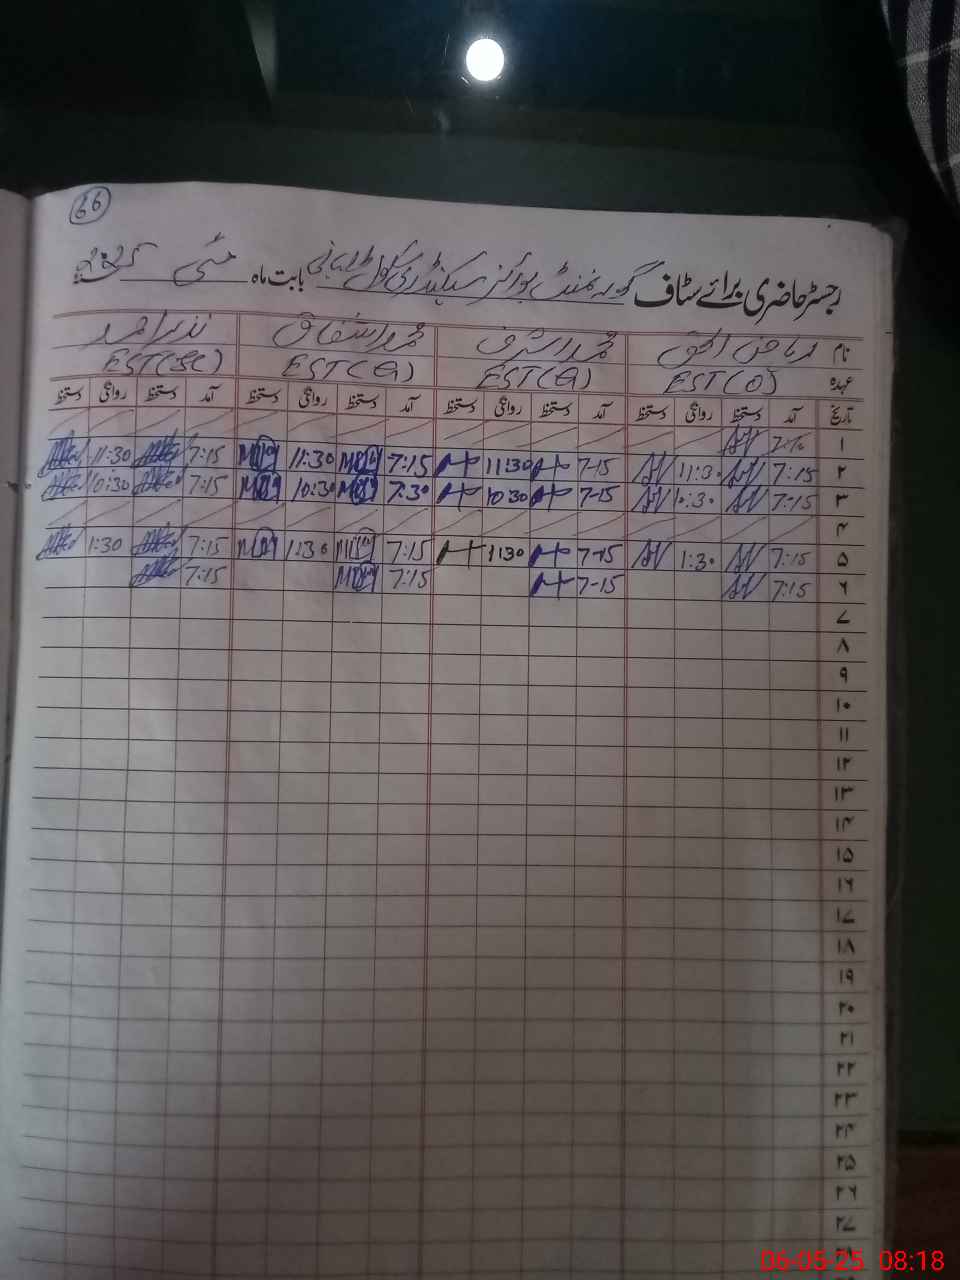 66
رجسٹر حاضری برائے سٹاف گورنمنٹ بوائز سیکنڈری سکول بابت ماہ مئی ۲۰۲۵
نام ریاض الحق محمد اشرف محمد اشفاق نذیر احمد
عہدہ EST(O) EST(A) EST(A) EST(SC)
تاریخ آمد دستخط روانگی دستخط آمد دستخط روانگی دستخط آمد دستخط روانگی دستخط آمد دستخط روانگی دستخط
۱
۲ 7:15 11:30 7-15 11:30 7:15 11:30 7:15 11:30
۳ 7:15 10:30 7-15 10:30 7:30 10:30 7:15 10:30
۴
۵ 7:15 1:30 7-15 1:30 7:15 1:30 7:15 1:30
۶ 7:15 7-15 7:15 7:15
۷
۸
۹
۱۰
۱۱
۱۲
۱۳
۱۴
۱۵
۱۶
۱۷
۱۸
۱۹
۲۰
۲۱
۲۲
۲۳
۲۴
۲۵
۲۶
۲۷
06-05-25 08:18